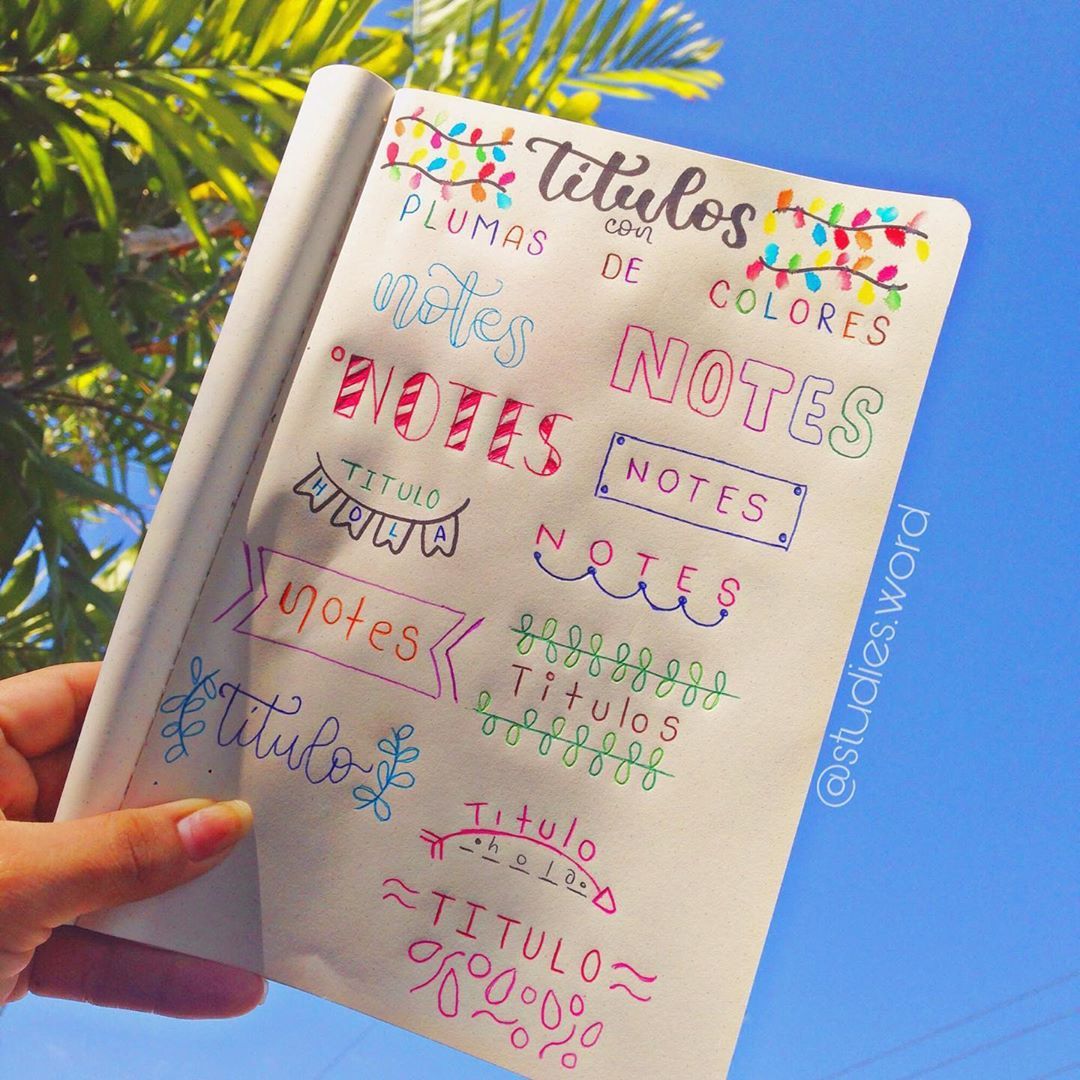 títulos
con
PLUMAS DE COLORES
notes
NOTES
NOTES
NOTES
TITULO
HOLA
NOTES
notes
Titulos
título
Titulo
hola
TITULO
@studies.word